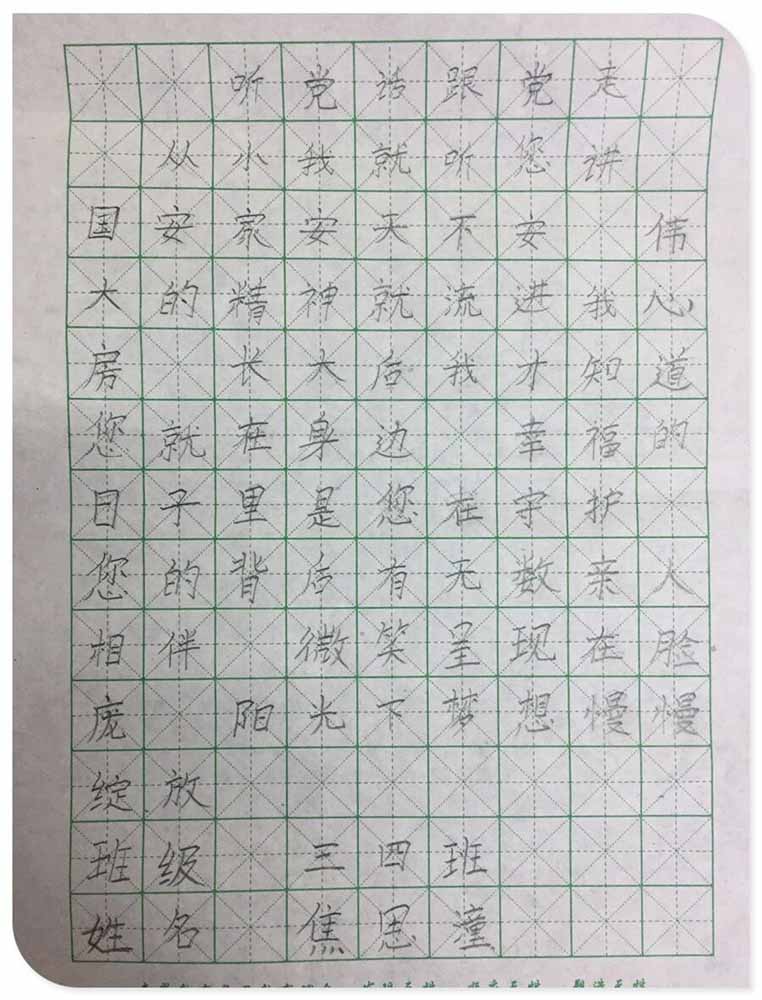 听党话跟党走
从小我就听您讲
国安家安天下安 伟
大的精神就流进我心
房 长大后我才知道
您就在身边 幸福的
日子里是您在守护
您的背后有无数亲人
相伴 微笑呈现在脸
庞 阳光下梦想慢慢
绽放
班级 三四班
姓名 焦思潼